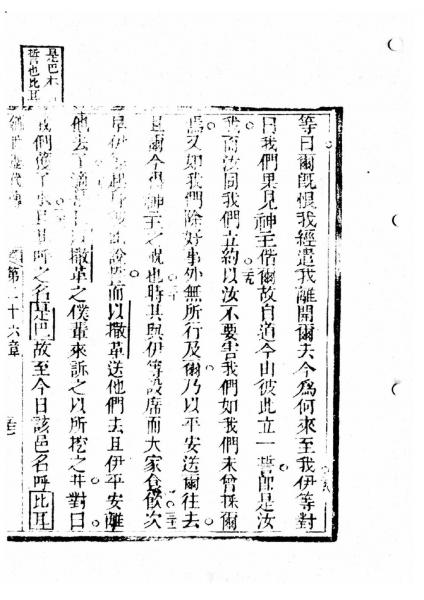 是巴
誓也比耳
等曰爾既恨我經遣我離開爾去今爲何來至我伊等對
曰我們果見神主偕爾故自道今由彼此立一誓即是汝
我而汝同我們立約以汝不要害我們如我們未曾採爾
焉又如我們除好事外無所行及爾乃以平安送爾往去
且爾今得神主之祝也時其與伊等設席而大家食飲次
早伊起身說誓而以撒革送他們去且伊平安離
他去了撒革之僕輩來訴之以所挖之井對曰
我們獲了水且其呼之名是巴故至今日該邑名呼比耳
創世歷代傳 第二十六章